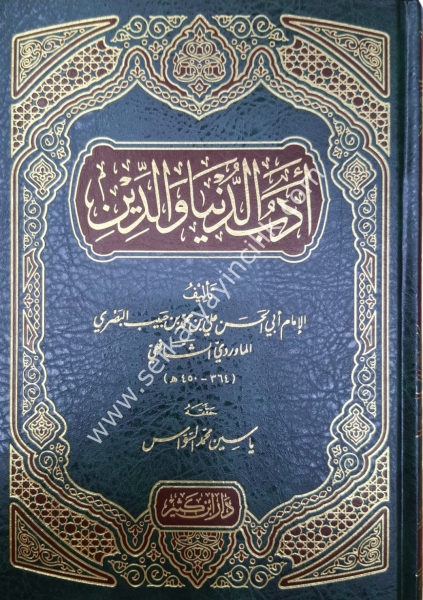 أَدَبُ الدُّنْيَا وَالدِّيْنِ
تأليف
الإمام أبي الحسن علي بن محمد بن حبيب البصري
الماوردي الشافعي
(٣٦٤ - ٤٥٠ هـ)
حققه
ياسين محمد السواس
دار ابن كثير
www.serkanyayincilik.com